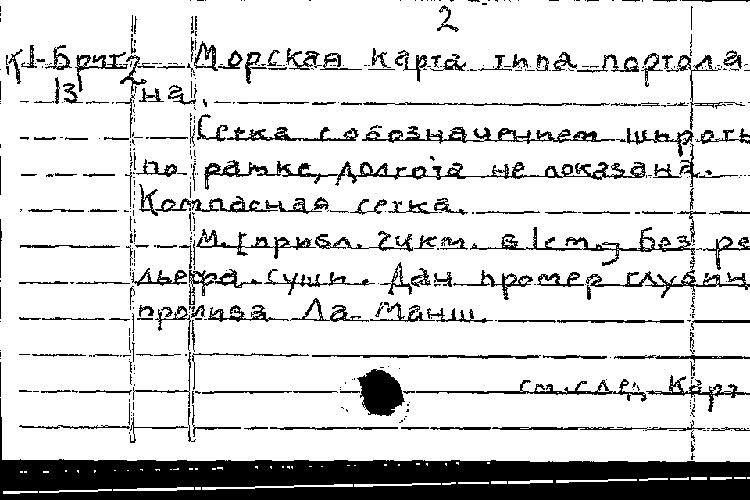 2
К 1-Брит2 Морская карта типа портола
13 на.
Сетка с обозначением широты
по рамке, долгота не показана.
Компасная сетка.
М. [прибл. 24км. в 1см.] без ре
льефа суши. Дан промер глубин
пролива Ла-Манш.
см. след. карт